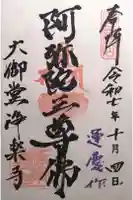 奉拝 令和七年十月四日
運慶作
阿弥陀三尊佛
大御堂浄楽寺